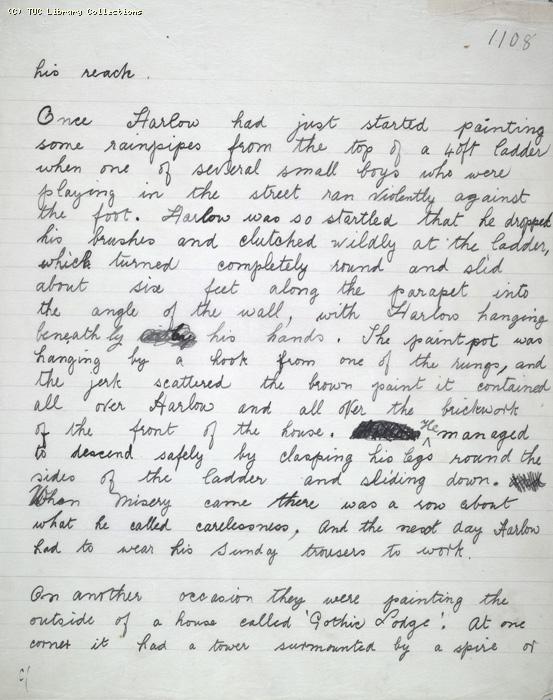 (C) TUC Library Collections
1108
his reach.
Once Harlow had just started painting
some rainpipes from the top of a 40ft ladder
when one of several small boys who were
playing in the street ran violently against
the foot. Harlow was so startled that he dropped
his brushes and clutched wildly at the ladder,
which turned completely round and slid
about six feet along the parapet into
the angle of the wall, with Harlow hanging
beneath by his hands. The paint pot was
hanging by a hook from one of the rungs, and
the jerk scattered the brown paint it contained
all over Harlow and all over the brickwork
of the front of the house. He managed
to descend safely by clasping his legs round the
sides of the ladder and sliding down.
When Misery came there was a row about
what he called carelessness, and the next day Harlow
had to wear his Sunday trousers to work.
On another occasion they were painting the
outside of a house called 'Gothic Lodge'. At one
corner it had a tower surmounted by a spire or